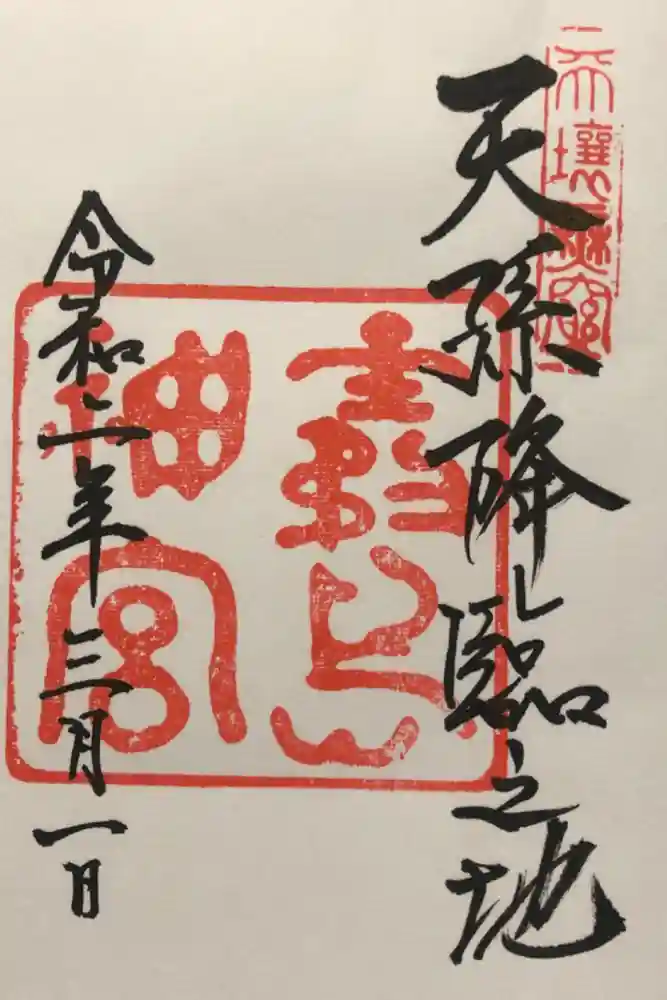 天壤無窮
天孫降臨之地
霧島
神宮
令和二年三月一日